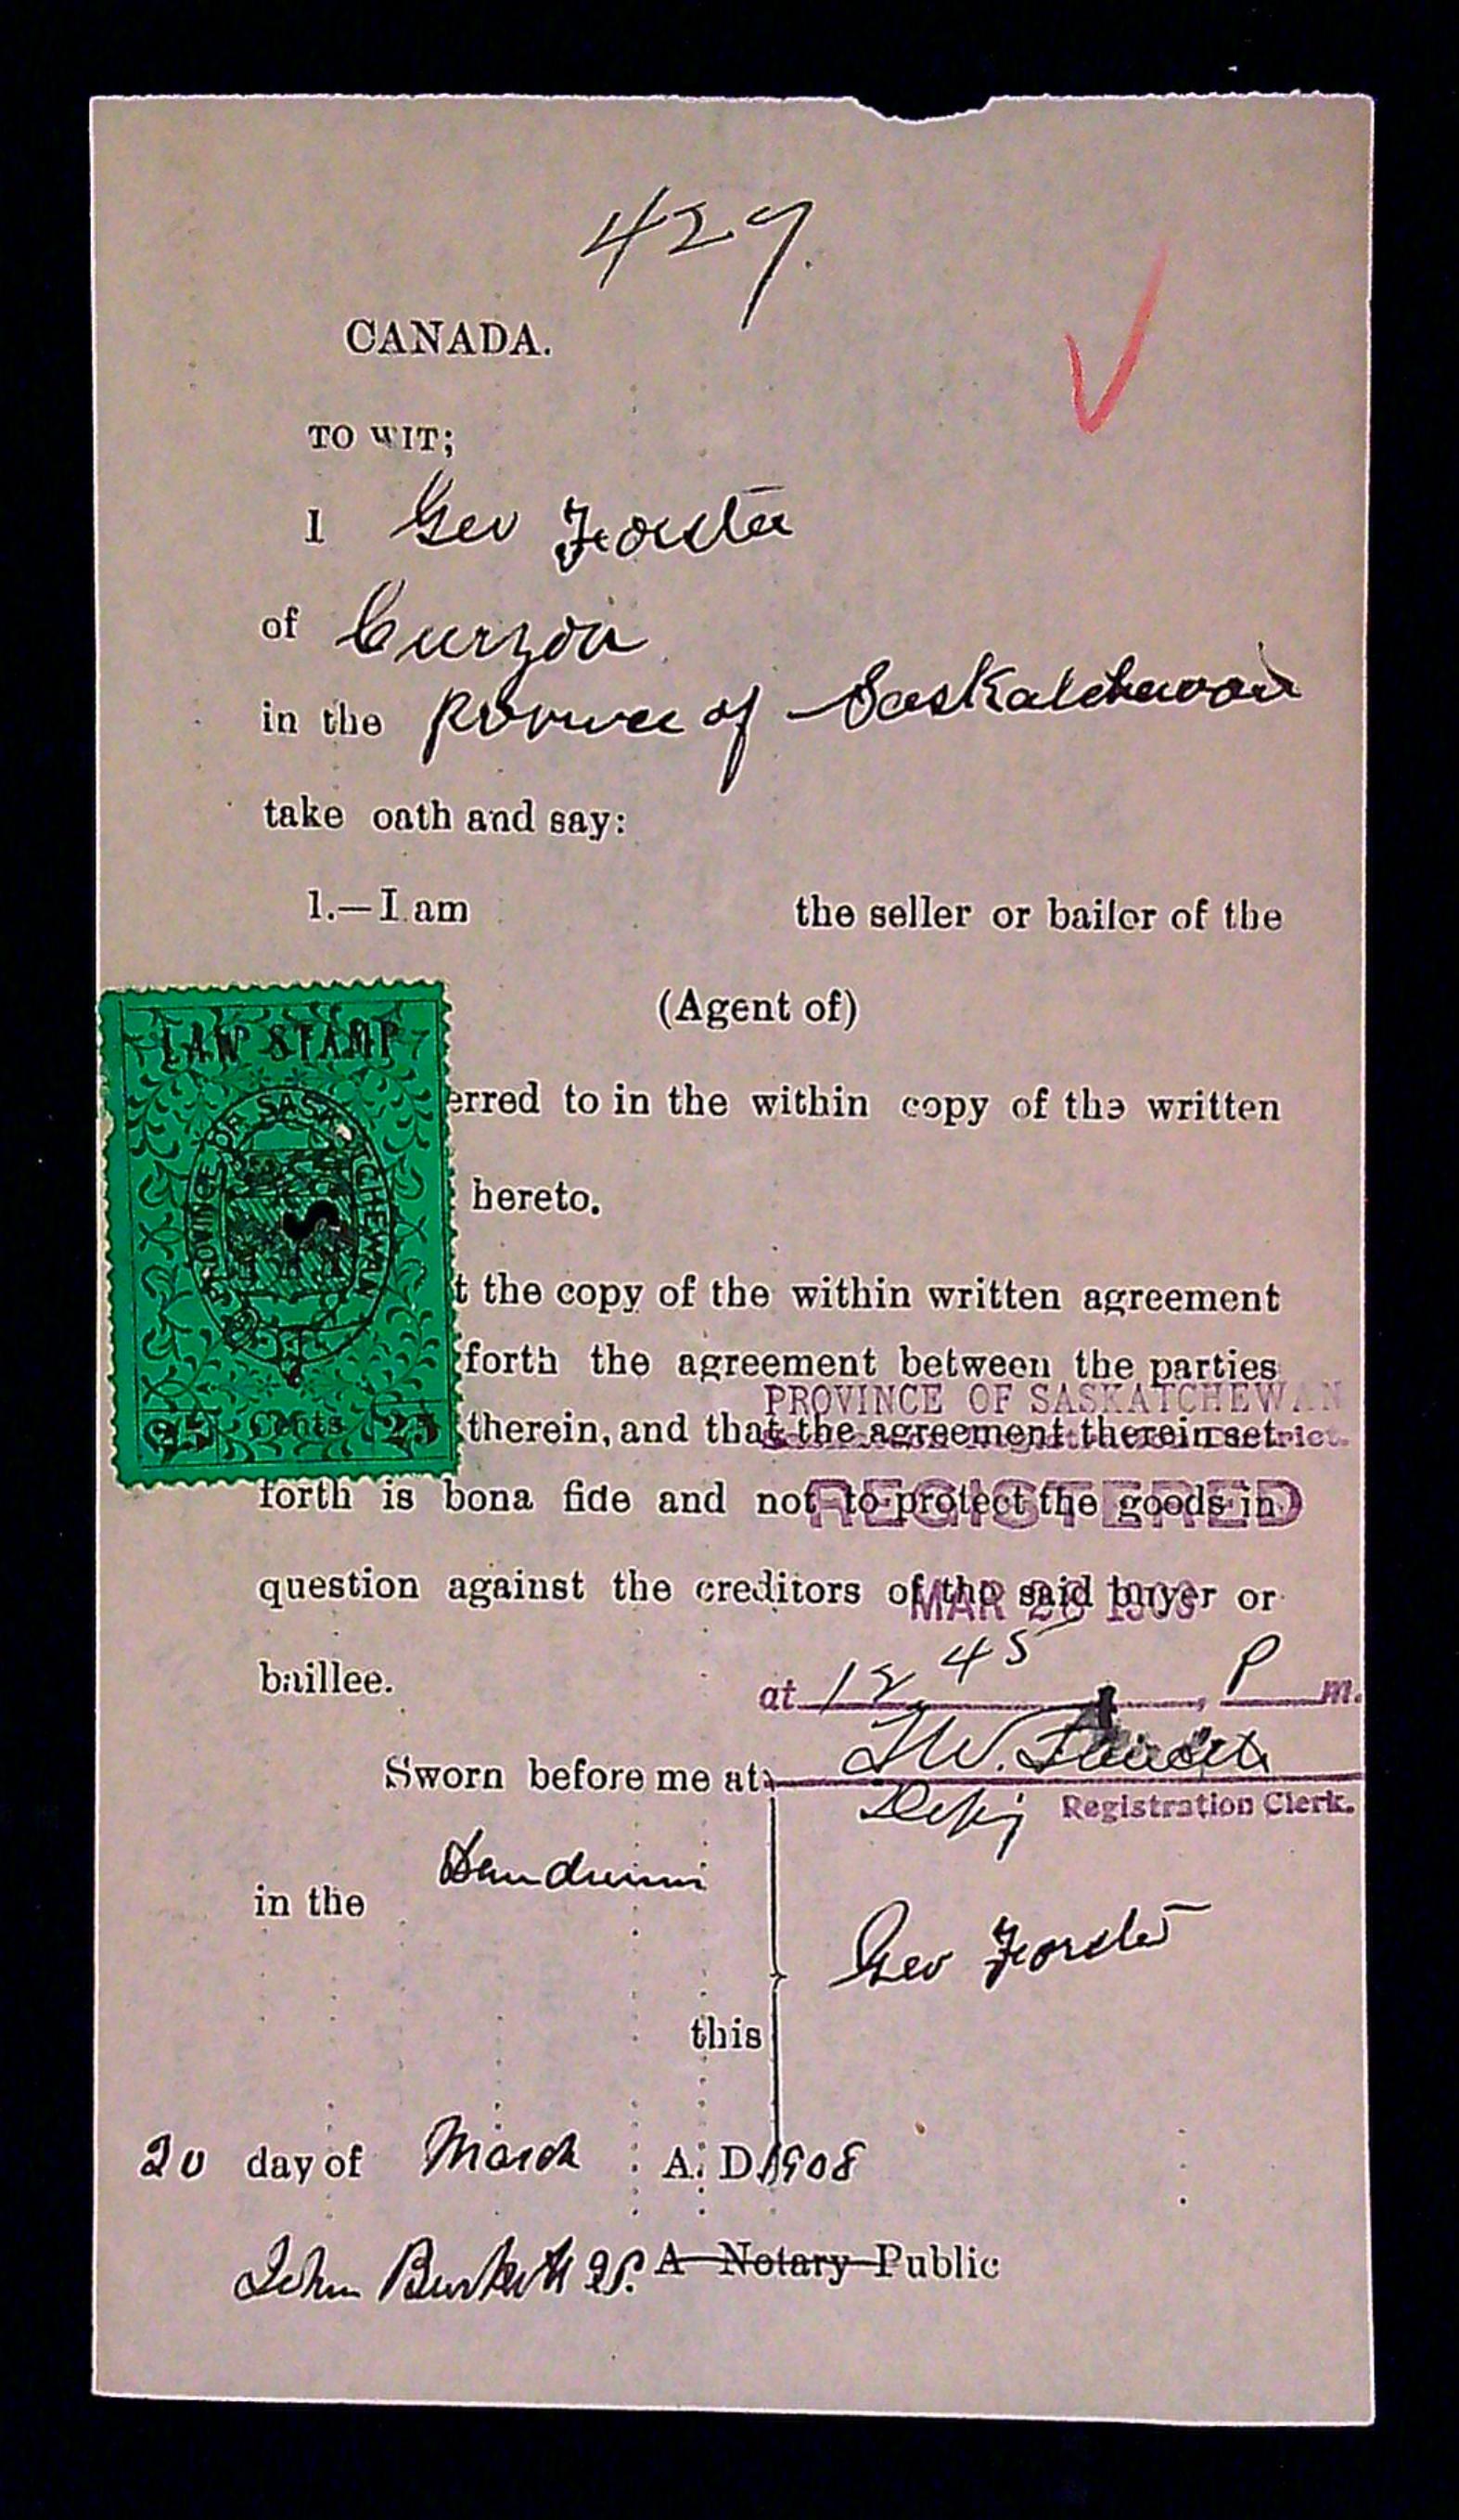 427.
CANADA.
TO WIT;
I Geo Forster
of Curzon
in the Province of Saskatchewan
take oath and say:
1.—I am the seller or bailor of the
(Agent of)
LAW STAMP
PROVINCE OF SASKATCHEWAN
25 Cents 25
erred to in the within copy of the written
hereto.
t the copy of the within written agreement
forth the agreement between the parties
PROVINCE OF SASKATCHEWAN
therein, and that the agreement therein set
forth is bona fide and not to protect the goods in
REGISTERED
question against the creditors of the said buyer or
MAR
baillee.
at 12 45 P m.
Sworn before me at
Registration Clerk.
in the
Geo Forster
this
20 day of March A. D. 1908
John A Notary Public